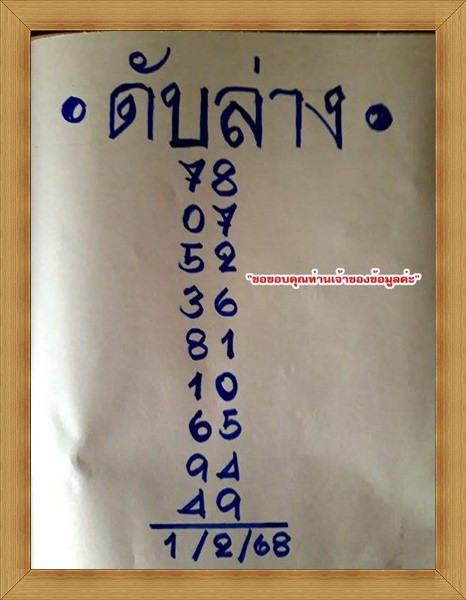 • ดับล่าง •
78
07
52
"ขอขอบคุณท่านเจ้าของข้อมูลค่ะ"
36
81
10
65
94
49
1/2/68